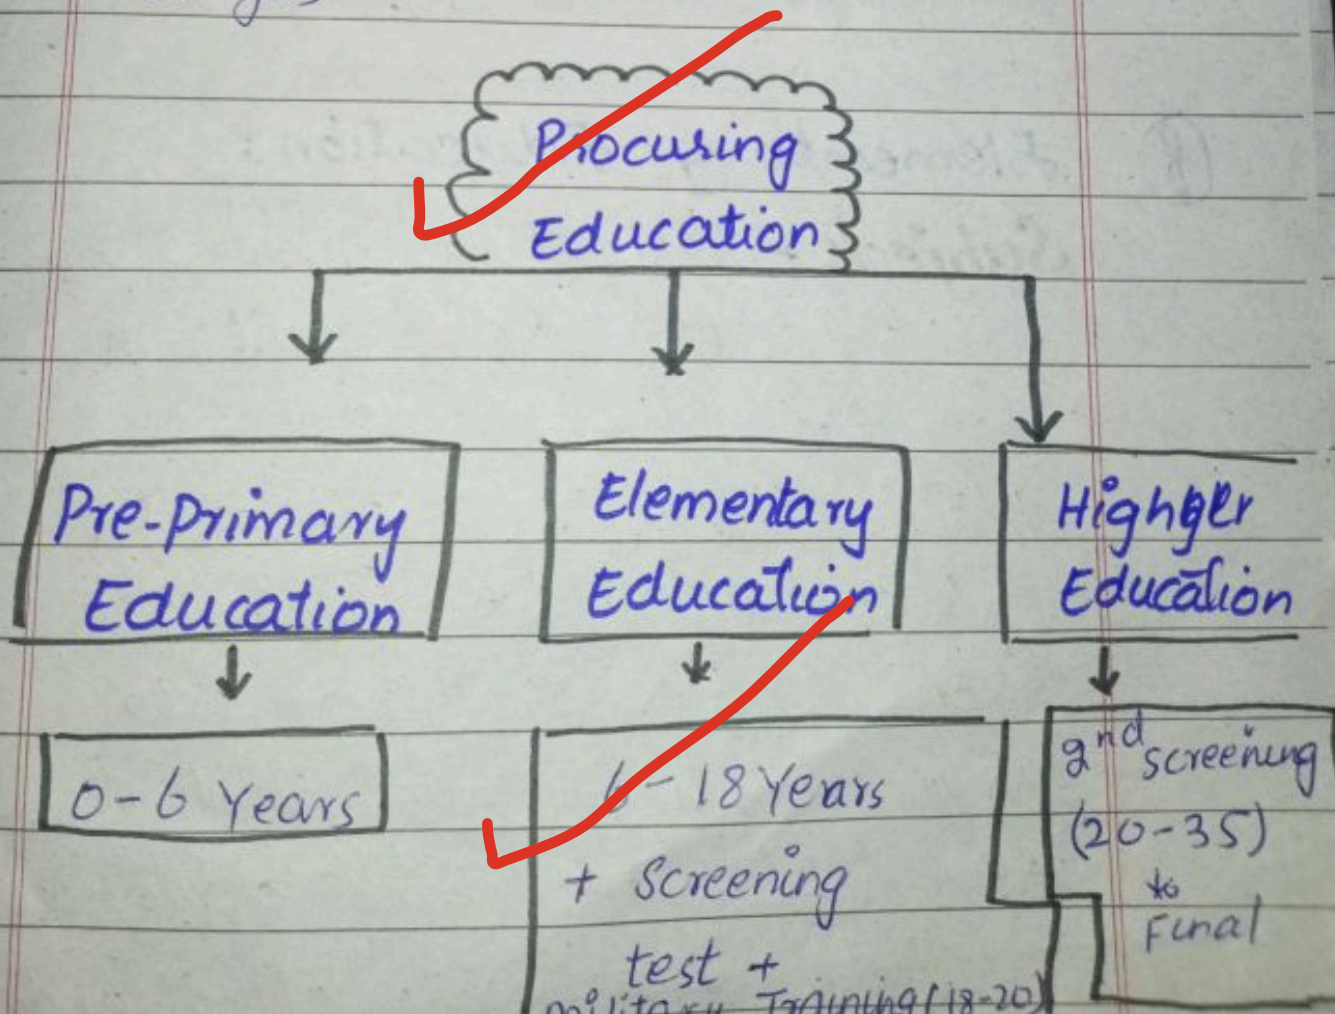 Procuring
Education
Pre-Primary
Education
Elementary
Education
Higher
Education
0-6 Years
6-18 Years
+ Screening
test +
Military Training (18-20)
2nd screening
(20-35)
Final